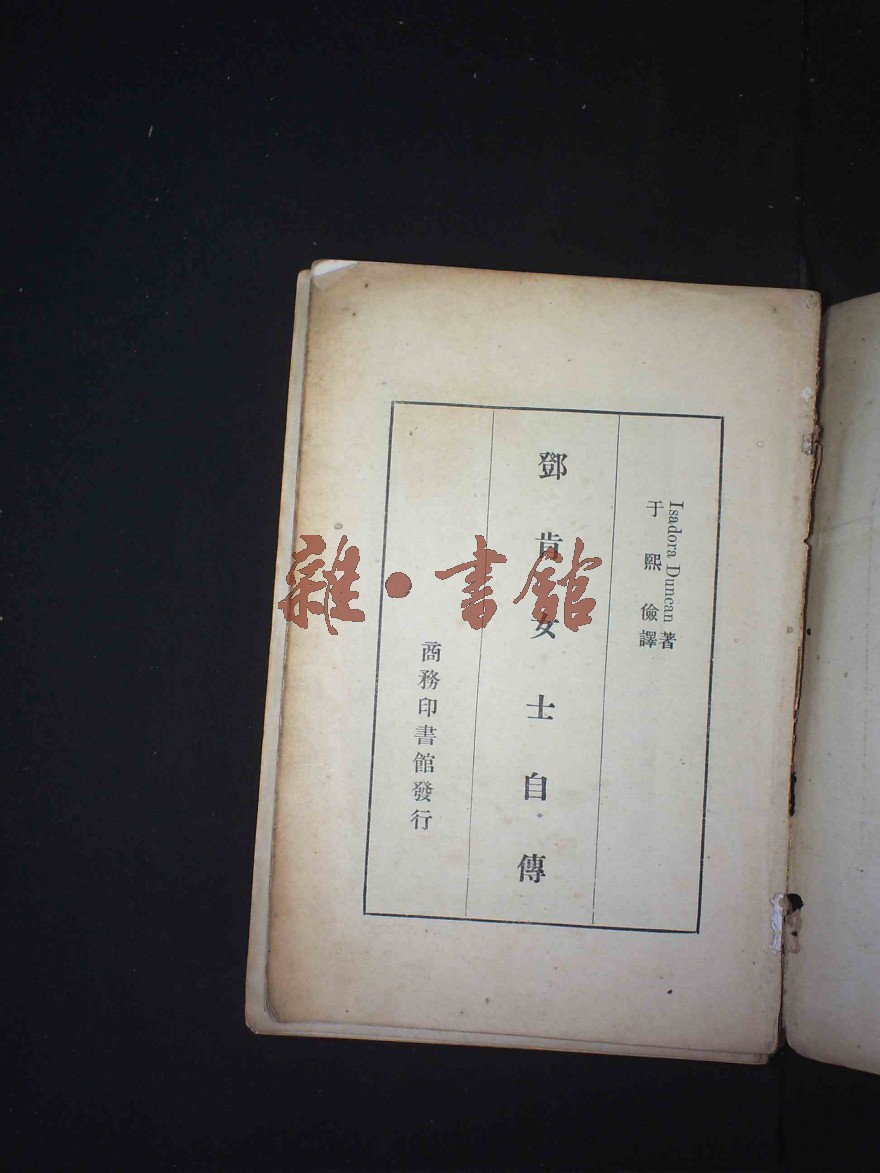 Isadora Duncan 著
于熙儉譯
鄧肯女士自傳
商務印書館發行
雜·書館